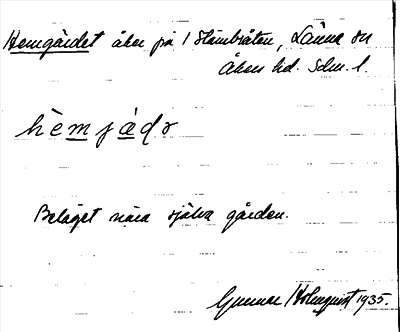 Hemgärdet åker på 1 Stambråten, Länna sn
Åkers hd. Sdm. l.
hèmjàdɘ
Beläget nära själva gården.
Gunnar Holmquist 1935.